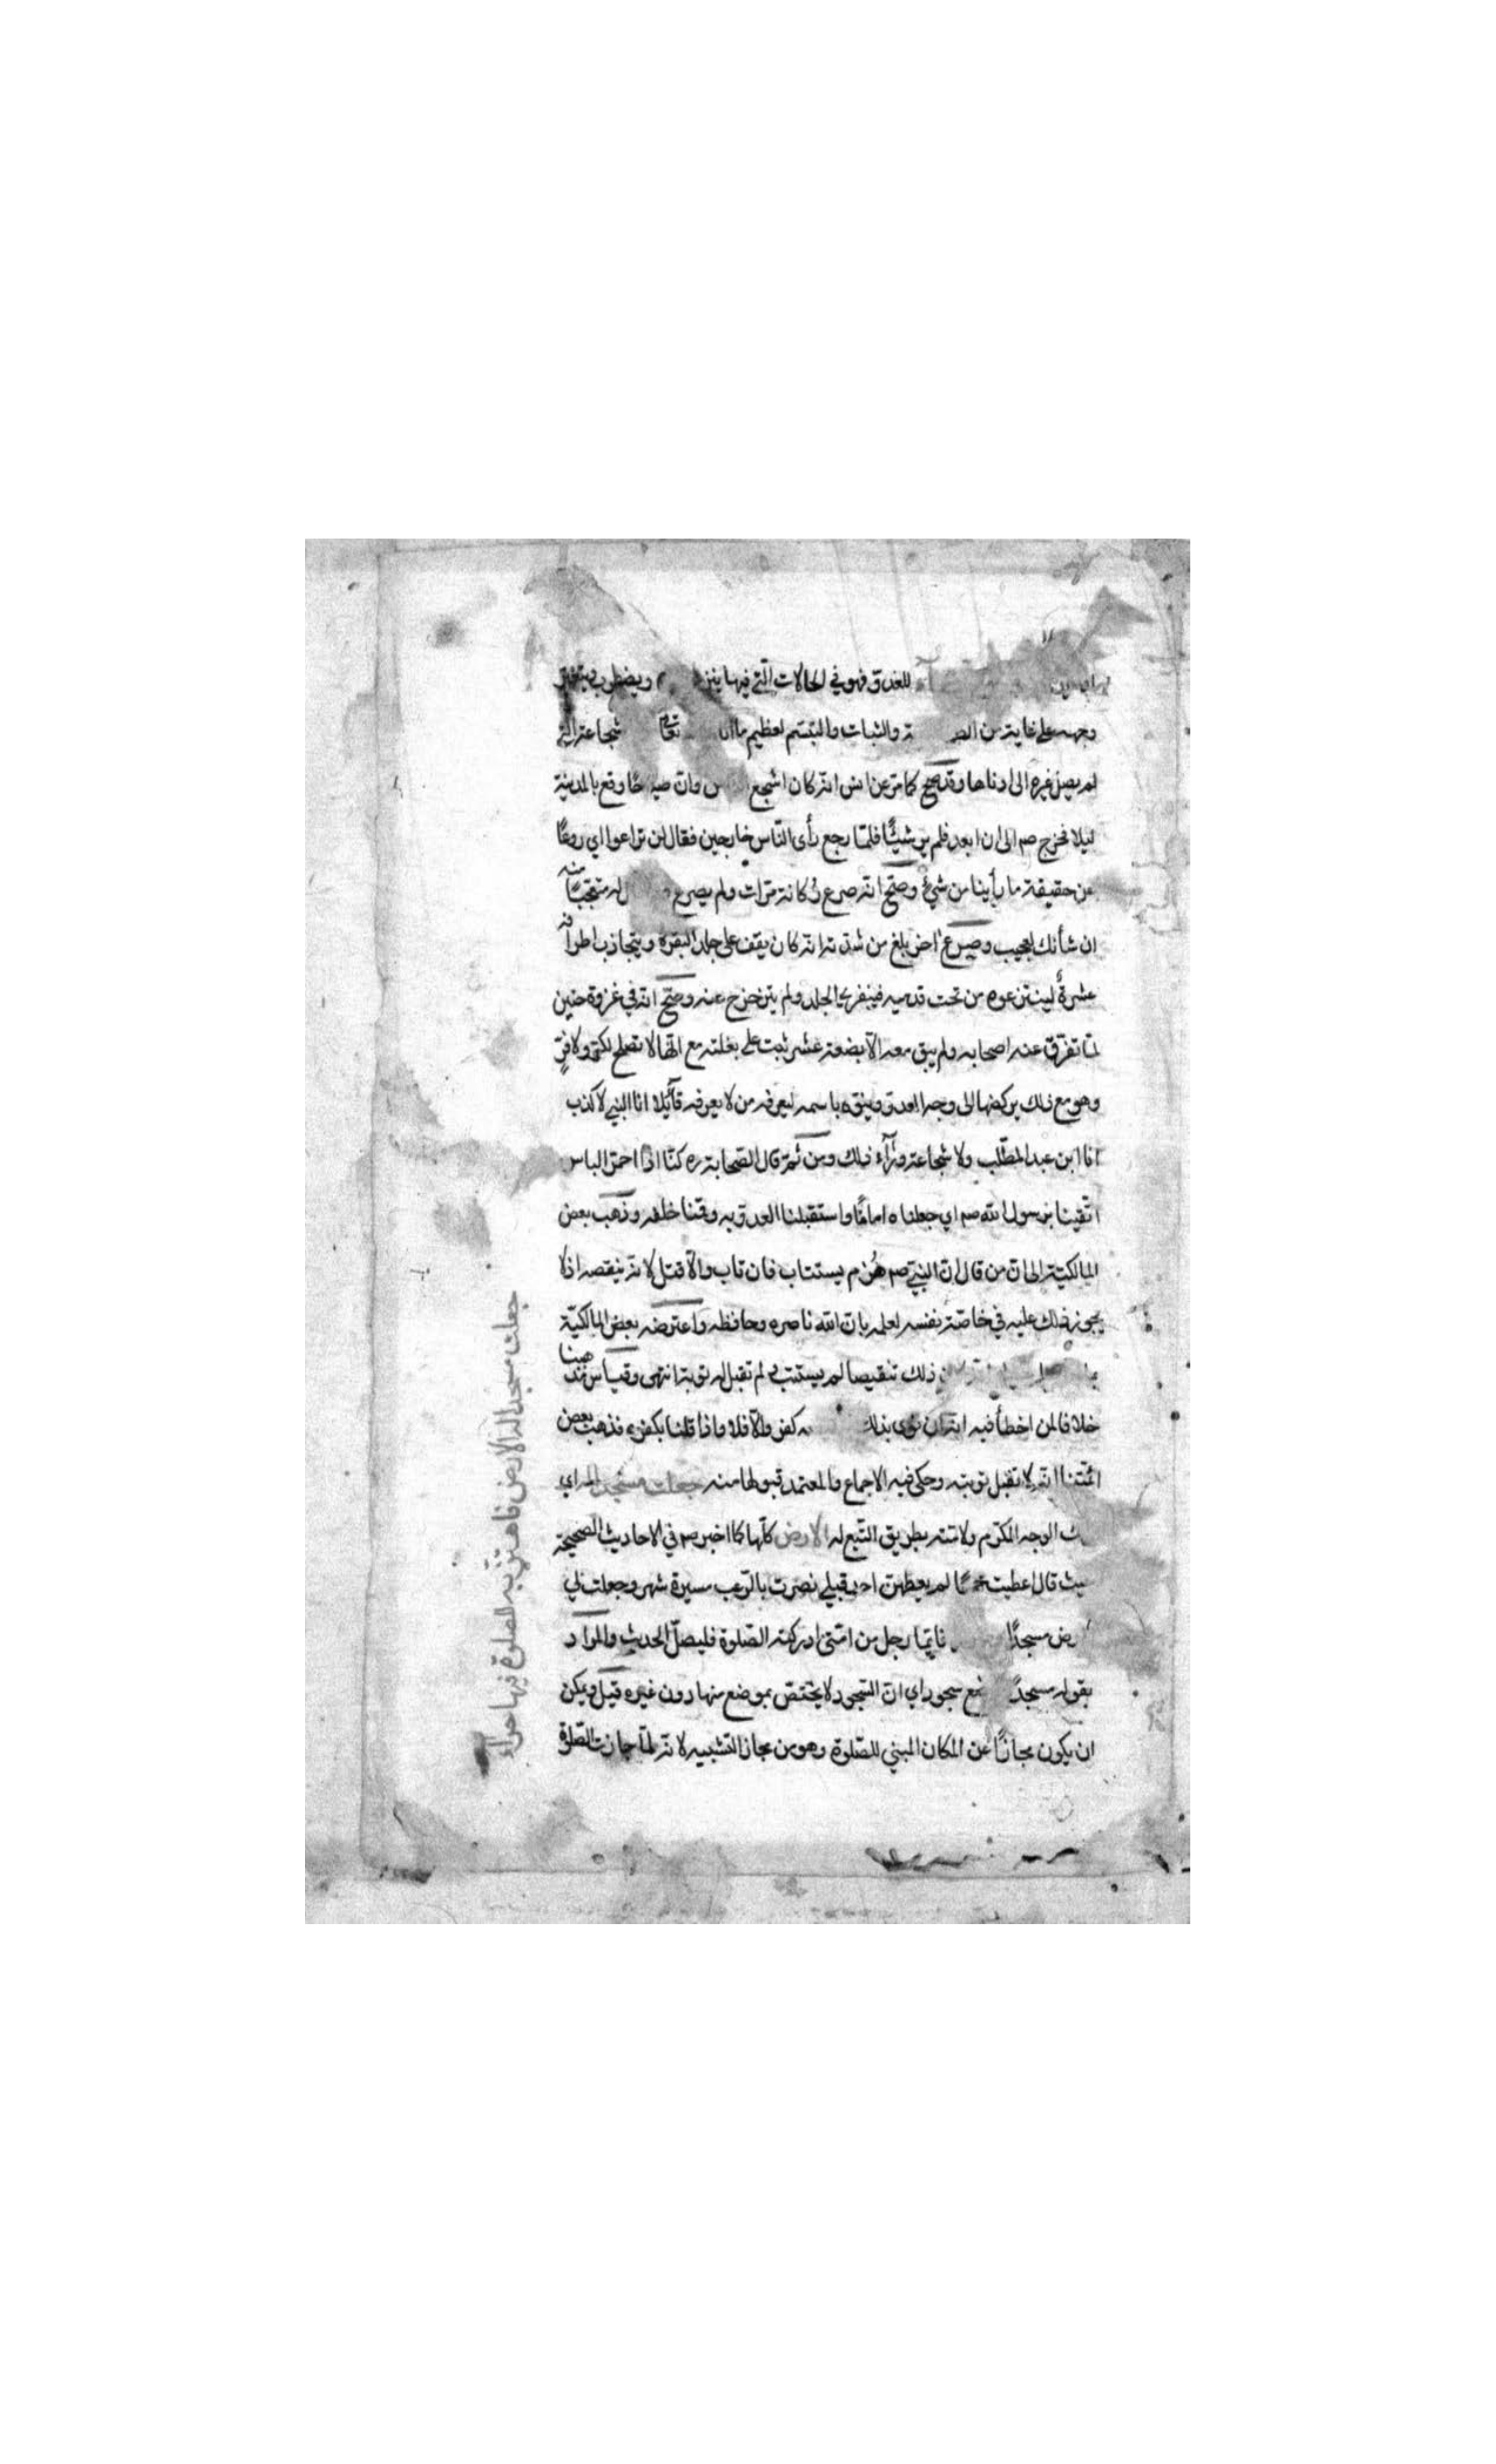 للعدوّ فهو في الحالات الّتي فيها ويضطرب ويتغيّر
وجهه على غاية من والثبات والتبسّم لعظيم ما تعالى شجاعته الّتي
لم يصل غيره الى ادناها وقد صحّ كما مرّ عن انس انّه كان اشجع وانّ وقع بالمدينة
ليلا فخرج صم الى ان ابعد فلم ير شيئًا فلمّا رجع رأى النّاس خارجين فقال لن تراعوا اي روعًا
عن حقيقة ما رأينا من شيئ وصحّ انّه صرع رُكانة مرّات ولم يصرع له متعجّبًا منه
ان شأنك لعجيب وصرع اخر بلغ من شدّته انّه كان يقف على جلد البقرة ويتجاذب اطرافه
عشرةٌ لينتزعوه من تحت قدميه فينفري الجلد ولم يتزحزح عنه وصحّ انّه في غزوة حنين
لمّا تفرّق عنه اصحابه ولم يبق معه الّا بضعة عشر ثبت على بغلته مع انّها لا تصلح لكرّ ولا فرّ
وهو مع ذلك يركضها الى وجه العدوّ وينوّه باسمه ليعرفه من لا يعرفه قآئلا انا النبي لا كذب
انا ابن عبد المطّلب ولا شجاعة ورآء ذلك ومن ثمّة قال الصّحابة ره كنّا اذا احمرّ الباس
اتّقينا برسول الله صم اي جعلناه امامًا واستقبلنا العدوّ به وقمنا خلفه وذهب بعض
المالكيّة الى انّ من قال انّ النبيّ صم هُزم يستتاب فان تاب والّا قتل لانّه ينقصه اذ لا
يجوز ذلك عليه في خاصّة نفسه لعلمه بانّ الله ناصره وحافظه واعترضه بعض المالكيّة
ذلك تنقيصا لم يستتب لم تقبل له توبة انتهى وقياس مذهبنا
خلافا لمن اخطأ فيه انّه ان نوى بذلك كفر والّا فلا واذا قلنا بكفره فذهب بعض
ائمّتنا انّه لا تقبل توبته وحكى فيه الاجماع والمعتمد قبولها منه جعلت مسجدا له اي
الوجه المكرّم ولامّته بطريق التّبع له الارض كلّها كما اخبر صم في الاحاديث الصّحيحة
حيث قال اعطيت خمسًا لم يعطهنّ احد قبلي نصرت بالرّعب مسيرة شهر وجعلت لي
الارض مسجدًا فايّما رجل من امّتي ادركته الصّلوة فليصلّ الحديث والمراد
بقوله مسجدًا موضع سجود اي انّ السّجود لا يختصّ بموضع منها دون غيره قيل ويمكن
ان يكون مجازًا عن المكان المبني للصّلوة وهو من مجاز التّشبيه لانّه لمّا جازت الصّلوة
جعلت مسجدا له الارض فاهتز به للصلوة فيها حراء